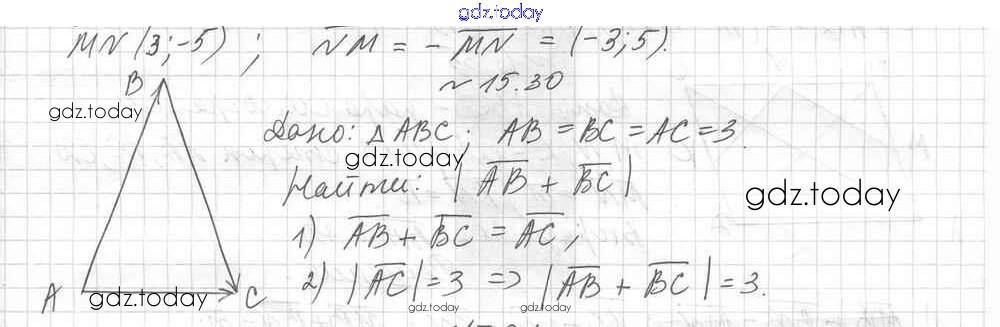 gdz.today
MN (3;-5) ; N̅M̅ = - M̅N̅ = (-3;5).
~ 15.30
B
gdz.today
Дано: △ABC; AB = BC = AC = 3.
gdz.today
Найти: |A̅B̅ + B̅C̅|
gdz.today
1) A̅B̅ + B̅C̅ = A̅C̅;
2) |A̅C̅| = 3 => |A̅B̅ + B̅C̅| = 3.
A gdz.today C
gdz.today gdz.today